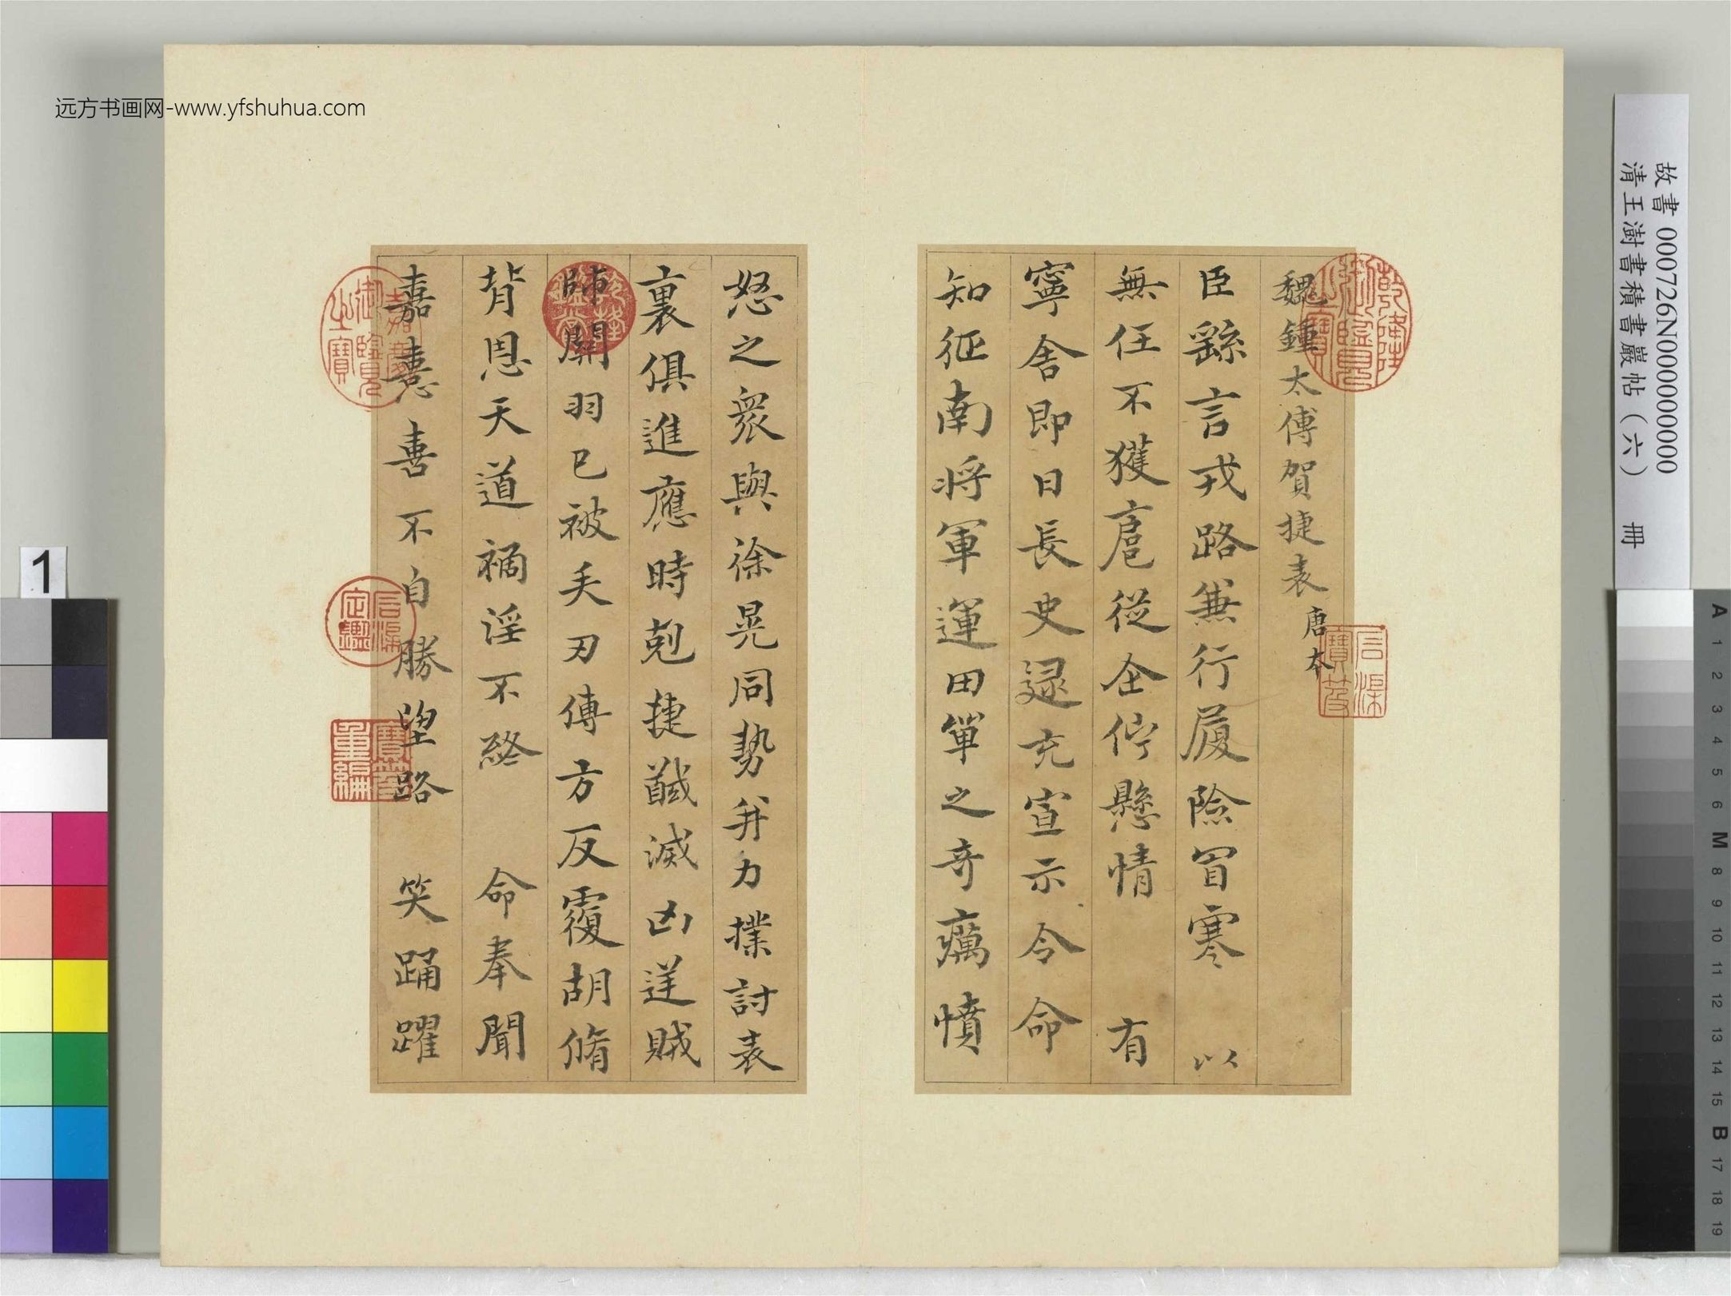 远方书画网-www.yfshuhua.com
魏鍾太傅賀捷表 唐本
臣繇言戎路兼行履險冒寒 以
無任不獲扈從企佇懸情 有
寧舍即日長史逯充宣示令命
知征南將軍運田單之奇癘憤
怒之衆與徐晃同勢并力撲討表
裏俱進應時剋捷馘滅凶逆賊
帥關羽已被矢刃傅方反覆胡脩
背恩天道禍淫不終 命奉聞
嘉憙喜不自勝望路 笑踊躍
乾隆御覽之寶
乾隆鑑賞
嘉慶御覽之寶
石渠寶笈
石渠定鑑
寶笈重編
故書 000726N000000000
清王澍書積書巖帖（六） 冊
1
A
1
2
3
4
5
6
M
8
9
10
11
12
13
14
15
B
17
18
19